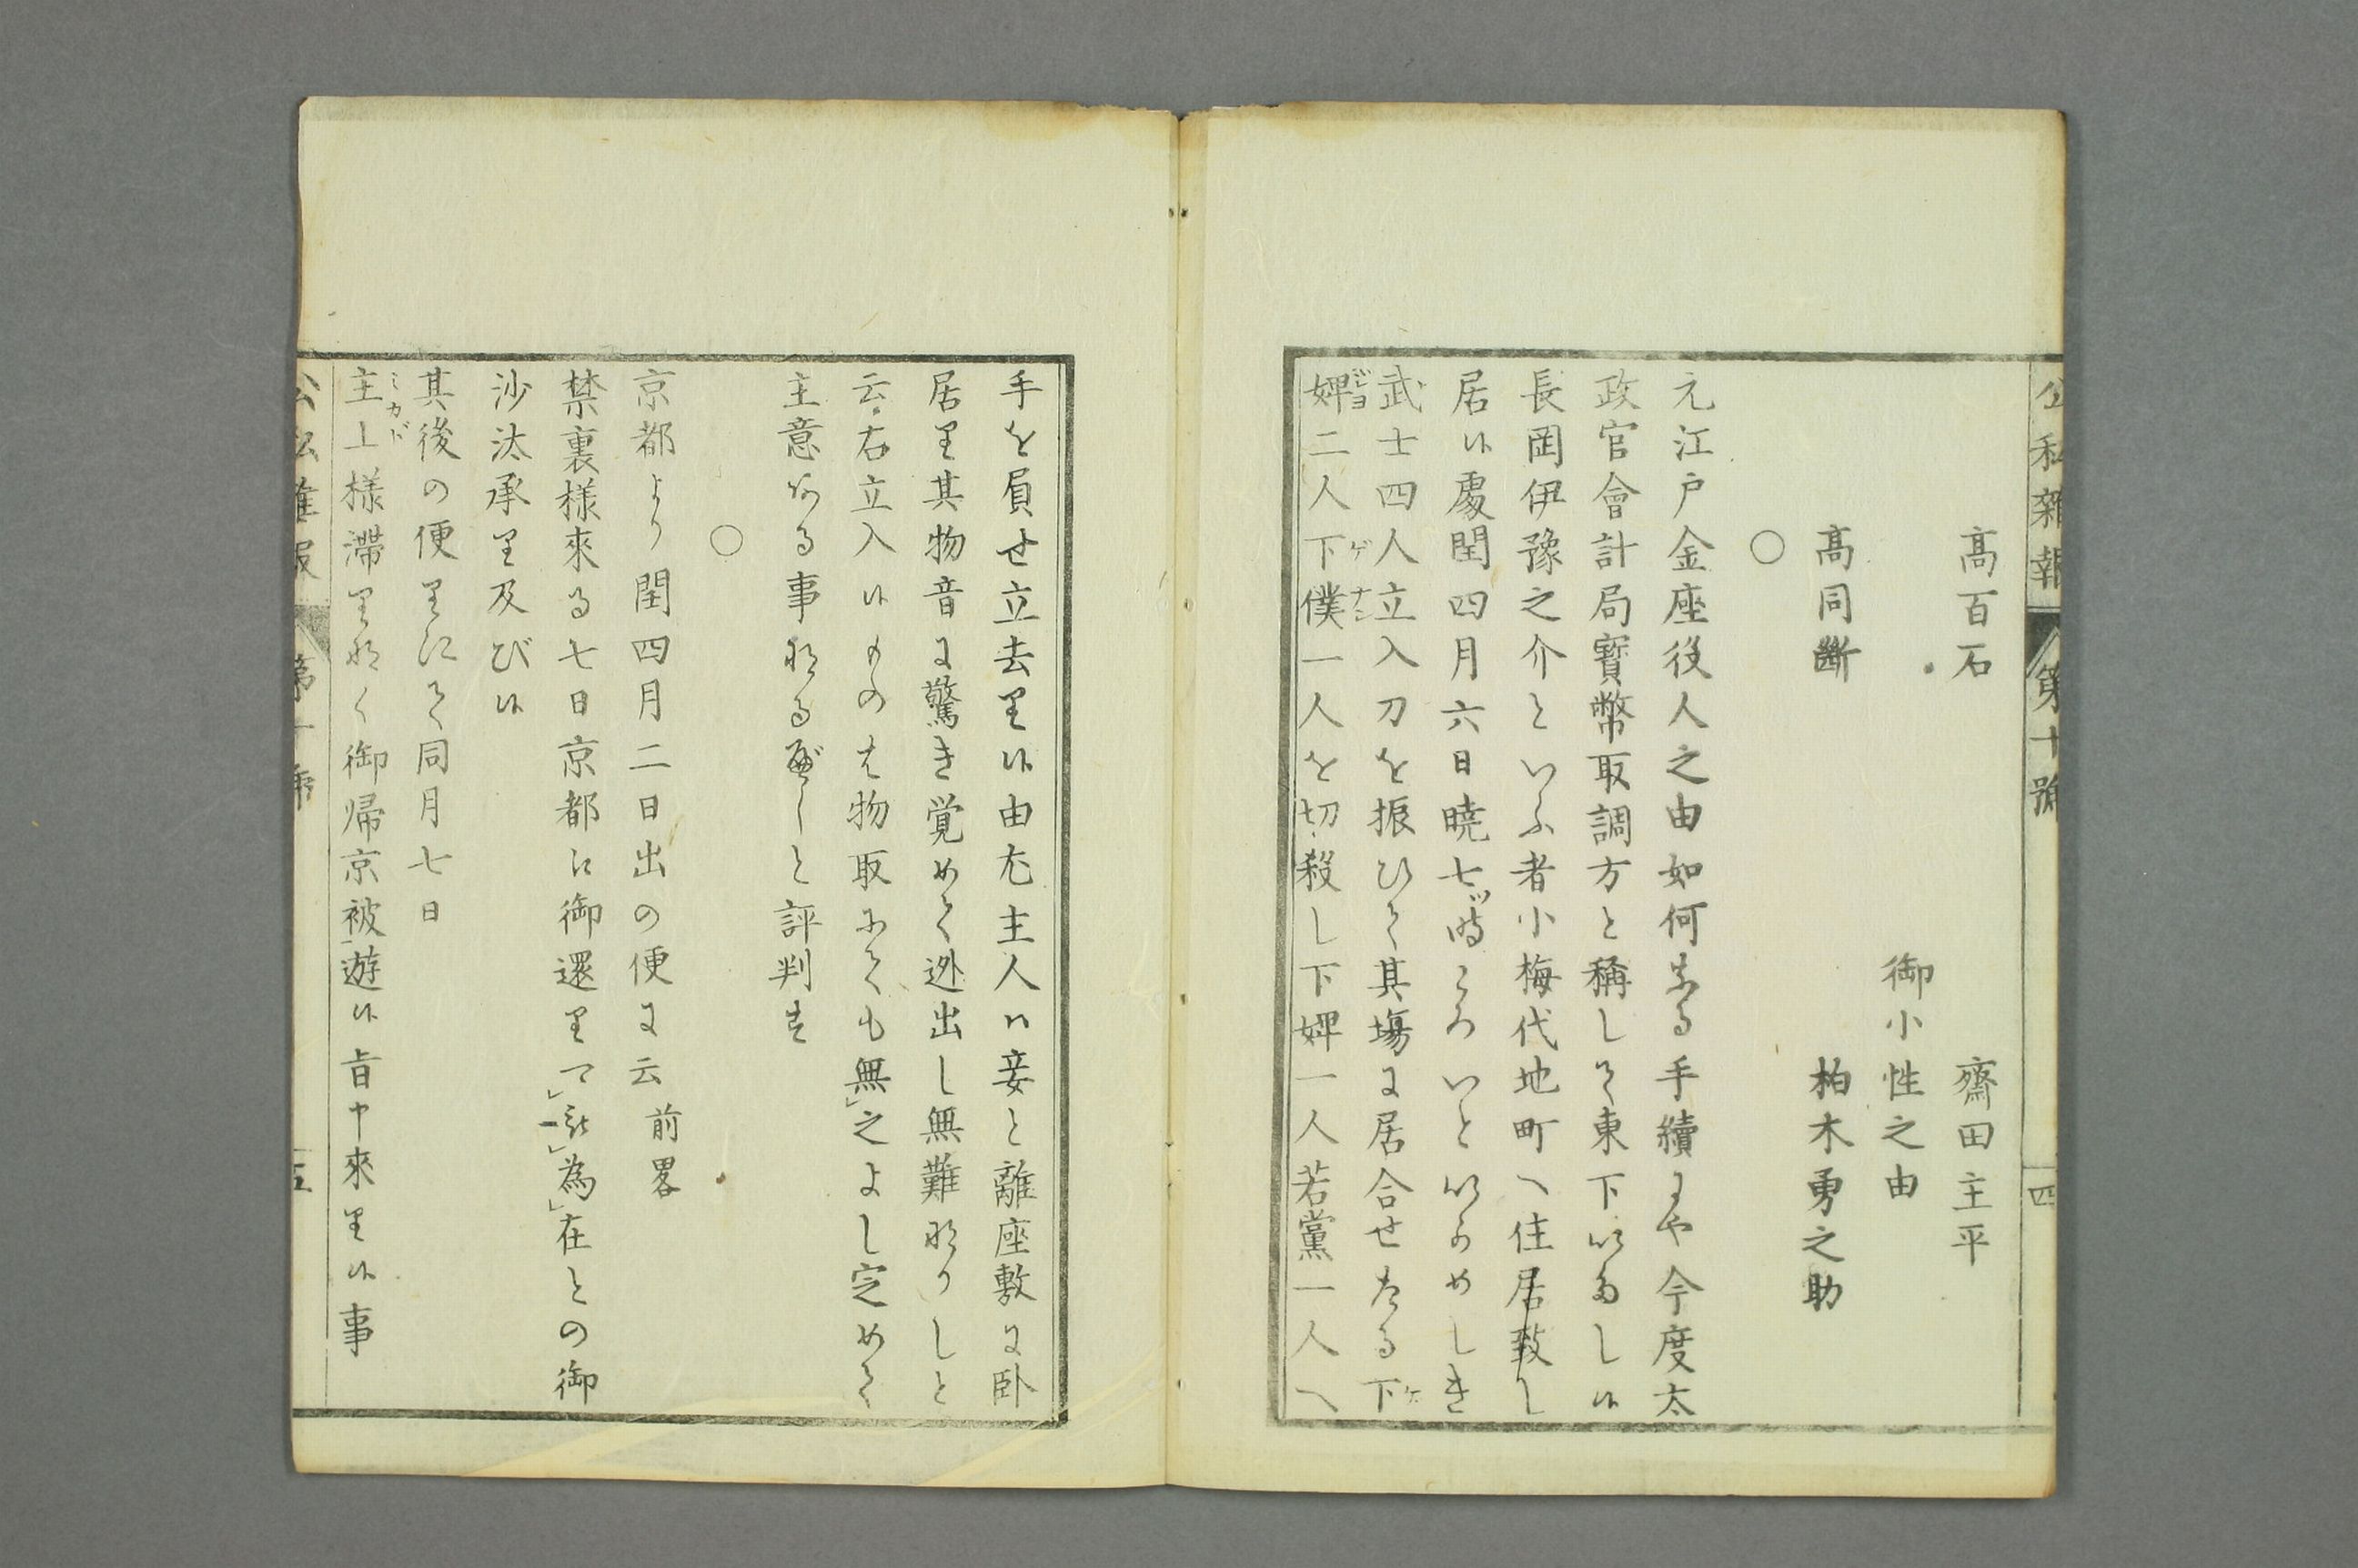 公私雑報　第十號　四
高百石　齋田主平
御小性之由
高同斷　柏木勇之助
○
元江戸金座役人之由如何なる手續にや今度太
政官會計局寳幣取調方と稱して東下いたし候
長岡伊豫之介といふ者小梅代地町へ住居致し
居候處閏四月六日曉七ツ時ころいといかめしき
武士四人立入刀を振ひて其場に居合せたる下
婢二人下僕一人を切殺し下婢一人若黨一人へ
手を負せ立去り候由尤主人ハ妾と離座敷に卧
居り其物音に驚き覚めて迯出し無難なりしと
云右立入候ものは物取にても無之よし定めて
主意ある事なるべしと評判す
○
京都より閏四月二日出の便に云前畧
禁裏様來る七日京都に御還り可被為在との御
沙汰承り及び候
其後の便りにて同月七日
主上様滞りなく御帰京被遊候旨申來り候事
公私雑報　第十號　五